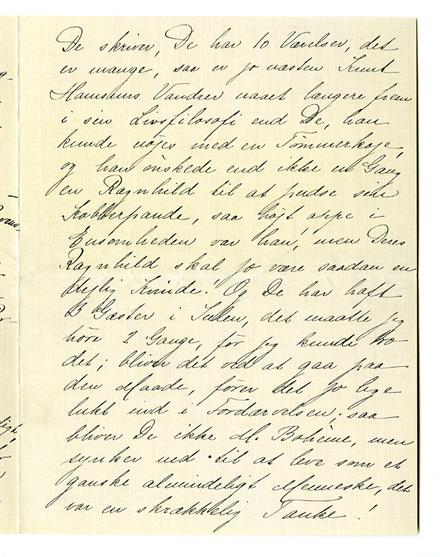 De skriver, De har 10 Værelser, det
er mange, saa er jo næsten Knut
Hamsuns Vandrer naaet længere frem
i sin Livsfilosofi end De, han
kunde nøjes med en Tømmerkoje,
og han ønskede end ikke en Gang
en Ragnhild til at pudse sin
Kobberpande, saa højt oppe i
Ensomheden var han, men Deres
Ragnhild skal jo være saadan en
dejlig Kvinde. Og De har haft
Gæster i Julen, det maatte jeg
høre 2 Gange, før jeg kunde tro
det; bliver det ved at gaa paa
den Maade, fører det jo lige
lukt ind i Fordærvelsen; saa
bliver De ikke M. Bohème, men
synker ned til at leve som et
ganske almindeligt Menneske, det
var en skrækkelig Tanke!